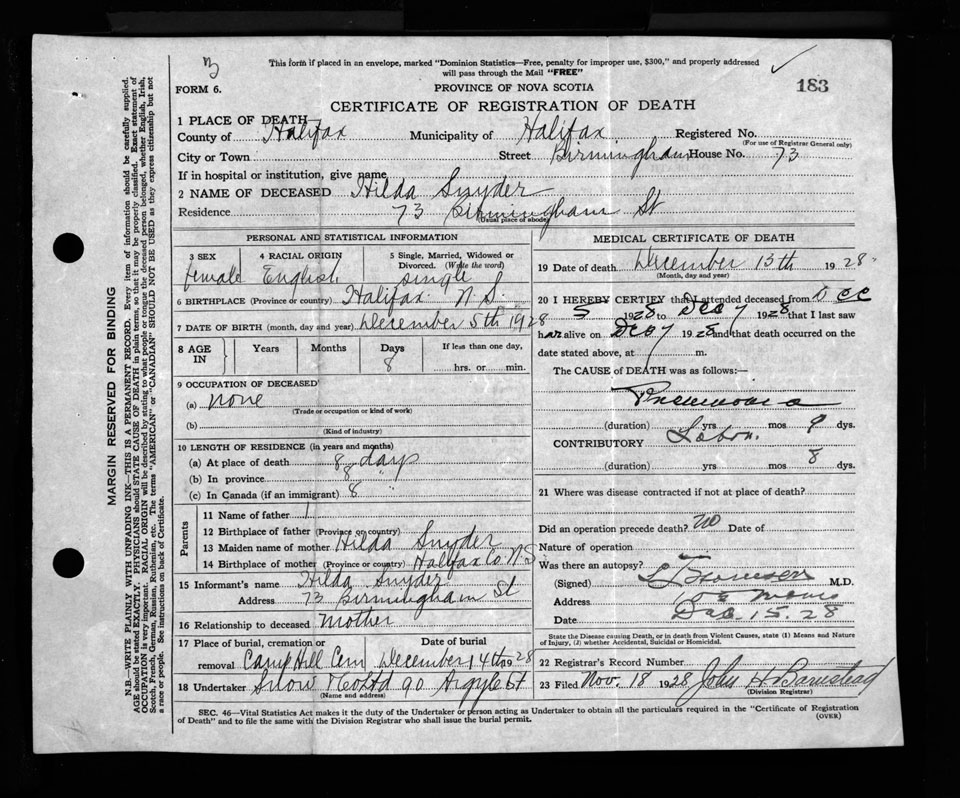 3
This form if placed in an envelope, marked "Dominion Statistics—Free, penalty for improper use, $300," and properly addressed
will pass through the Mail "FREE"
183
FORM 6.
PROVINCE OF NOVA SCOTIA
CERTIFICATE OF REGISTRATION OF DEATH
1 PLACE OF DEATH
County of Halifax Municipality of Halifax Registered No.
(For use of Registrar General only)
City or Town Street Birmingham House No. 73
If in hospital or institution, give name
2 NAME OF DECEASED Hilda Snyder
Residence 73 Birmingham St
(Usual place of abode)
PERSONAL AND STATISTICAL INFORMATION
3 SEX 4 RACIAL ORIGIN 5 Single, Married, Widowed or
Divorced. (Write the word)
female English single
6 BIRTHPLACE (Province or country) Halifax N S
7 DATE OF BIRTH (month, day and year) December 5th 1928
8 AGE IN Years Months Days If less than one day,
8 hrs. or min.
9 OCCUPATION OF DECEASED
(a) none
(Trade or occupation or kind of work)
(b)
(Kind of industry)
10 LENGTH OF RESIDENCE (in years and months)
(a) At place of death 8 days
(b) In province 8 "
(c) In Canada (if an immigrant) 8 "
Parents
11 Name of father
12 Birthplace of father (Province or country)
13 Maiden name of mother Hilda Snyder
14 Birthplace of mother (Province or country) Halifax Co N.S.
15 Informant's name Hilda Snyder
Address 73 Birmingham St
16 Relationship to deceased Mother
17 Place of burial, cremation or Date of burial
removal Camp Hill Cem December 14th 1928
18 Undertaker Snow & Co Ltd 90 Argyle St
(Name and address)
MEDICAL CERTIFICATE OF DEATH
19 Date of death December 13th 1928
(Month, day and year)
20 I HEREBY CERTIFY that I attended deceased from Dec
5 1928 to Dec 7 1928 that I last saw
h er alive on Dec 7 1928 and that death occurred on the
date stated above, at m.
The CAUSE of DEATH was as follows:—
Pneumonia
(duration) yrs mos 9 dys.
CONTRIBUTORY
(duration) yrs mos 8 dys.
21 Where was disease contracted if not at place of death?
Did an operation precede death? no Date of
Nature of operation
Was there an autopsy?
(Signed) M.D.
Address
Date Dec. 15. 28
State the Disease causing Death, or in death from Violent Causes, state (1) Means and Nature
of Injury, (2) whether Accidental, Suicidal or Homicidal.
22 Registrar's Record Number
23 Filed Nov. 18 1928 John H Barnstead
(Division Registrar)
SEC. 46—Vital Statistics Act makes it the duty of the Undertaker or person acting as Undertaker to obtain all the particulars required in the "Certificate of Registration
of Death" and to file the same with the Division Registrar who shall issue the burial permit.
(OVER)
MARGIN RESERVED FOR BINDING
N.B.—WRITE PLAINLY WITH UNFADING INK—THIS IS A PERMANENT RECORD. Every item of information should be carefully supplied.
AGE should be stated EXACTLY. PHYSICIANS should STATE CAUSE OF DEATH in plain terms, so that it may be properly classified. Exact statement of
OCCUPATION is very important. RACIAL ORIGIN will be described by stating to what people or tongue the deceased person belonged, whether English, Irish,
Scotch, French, German, Russian, Ruthenian, etc. The terms "AMERICAN" or "CANADIAN" SHOULD NOT BE USED as they express citizenship but not
a race or people. See instructions on back of Certificate.